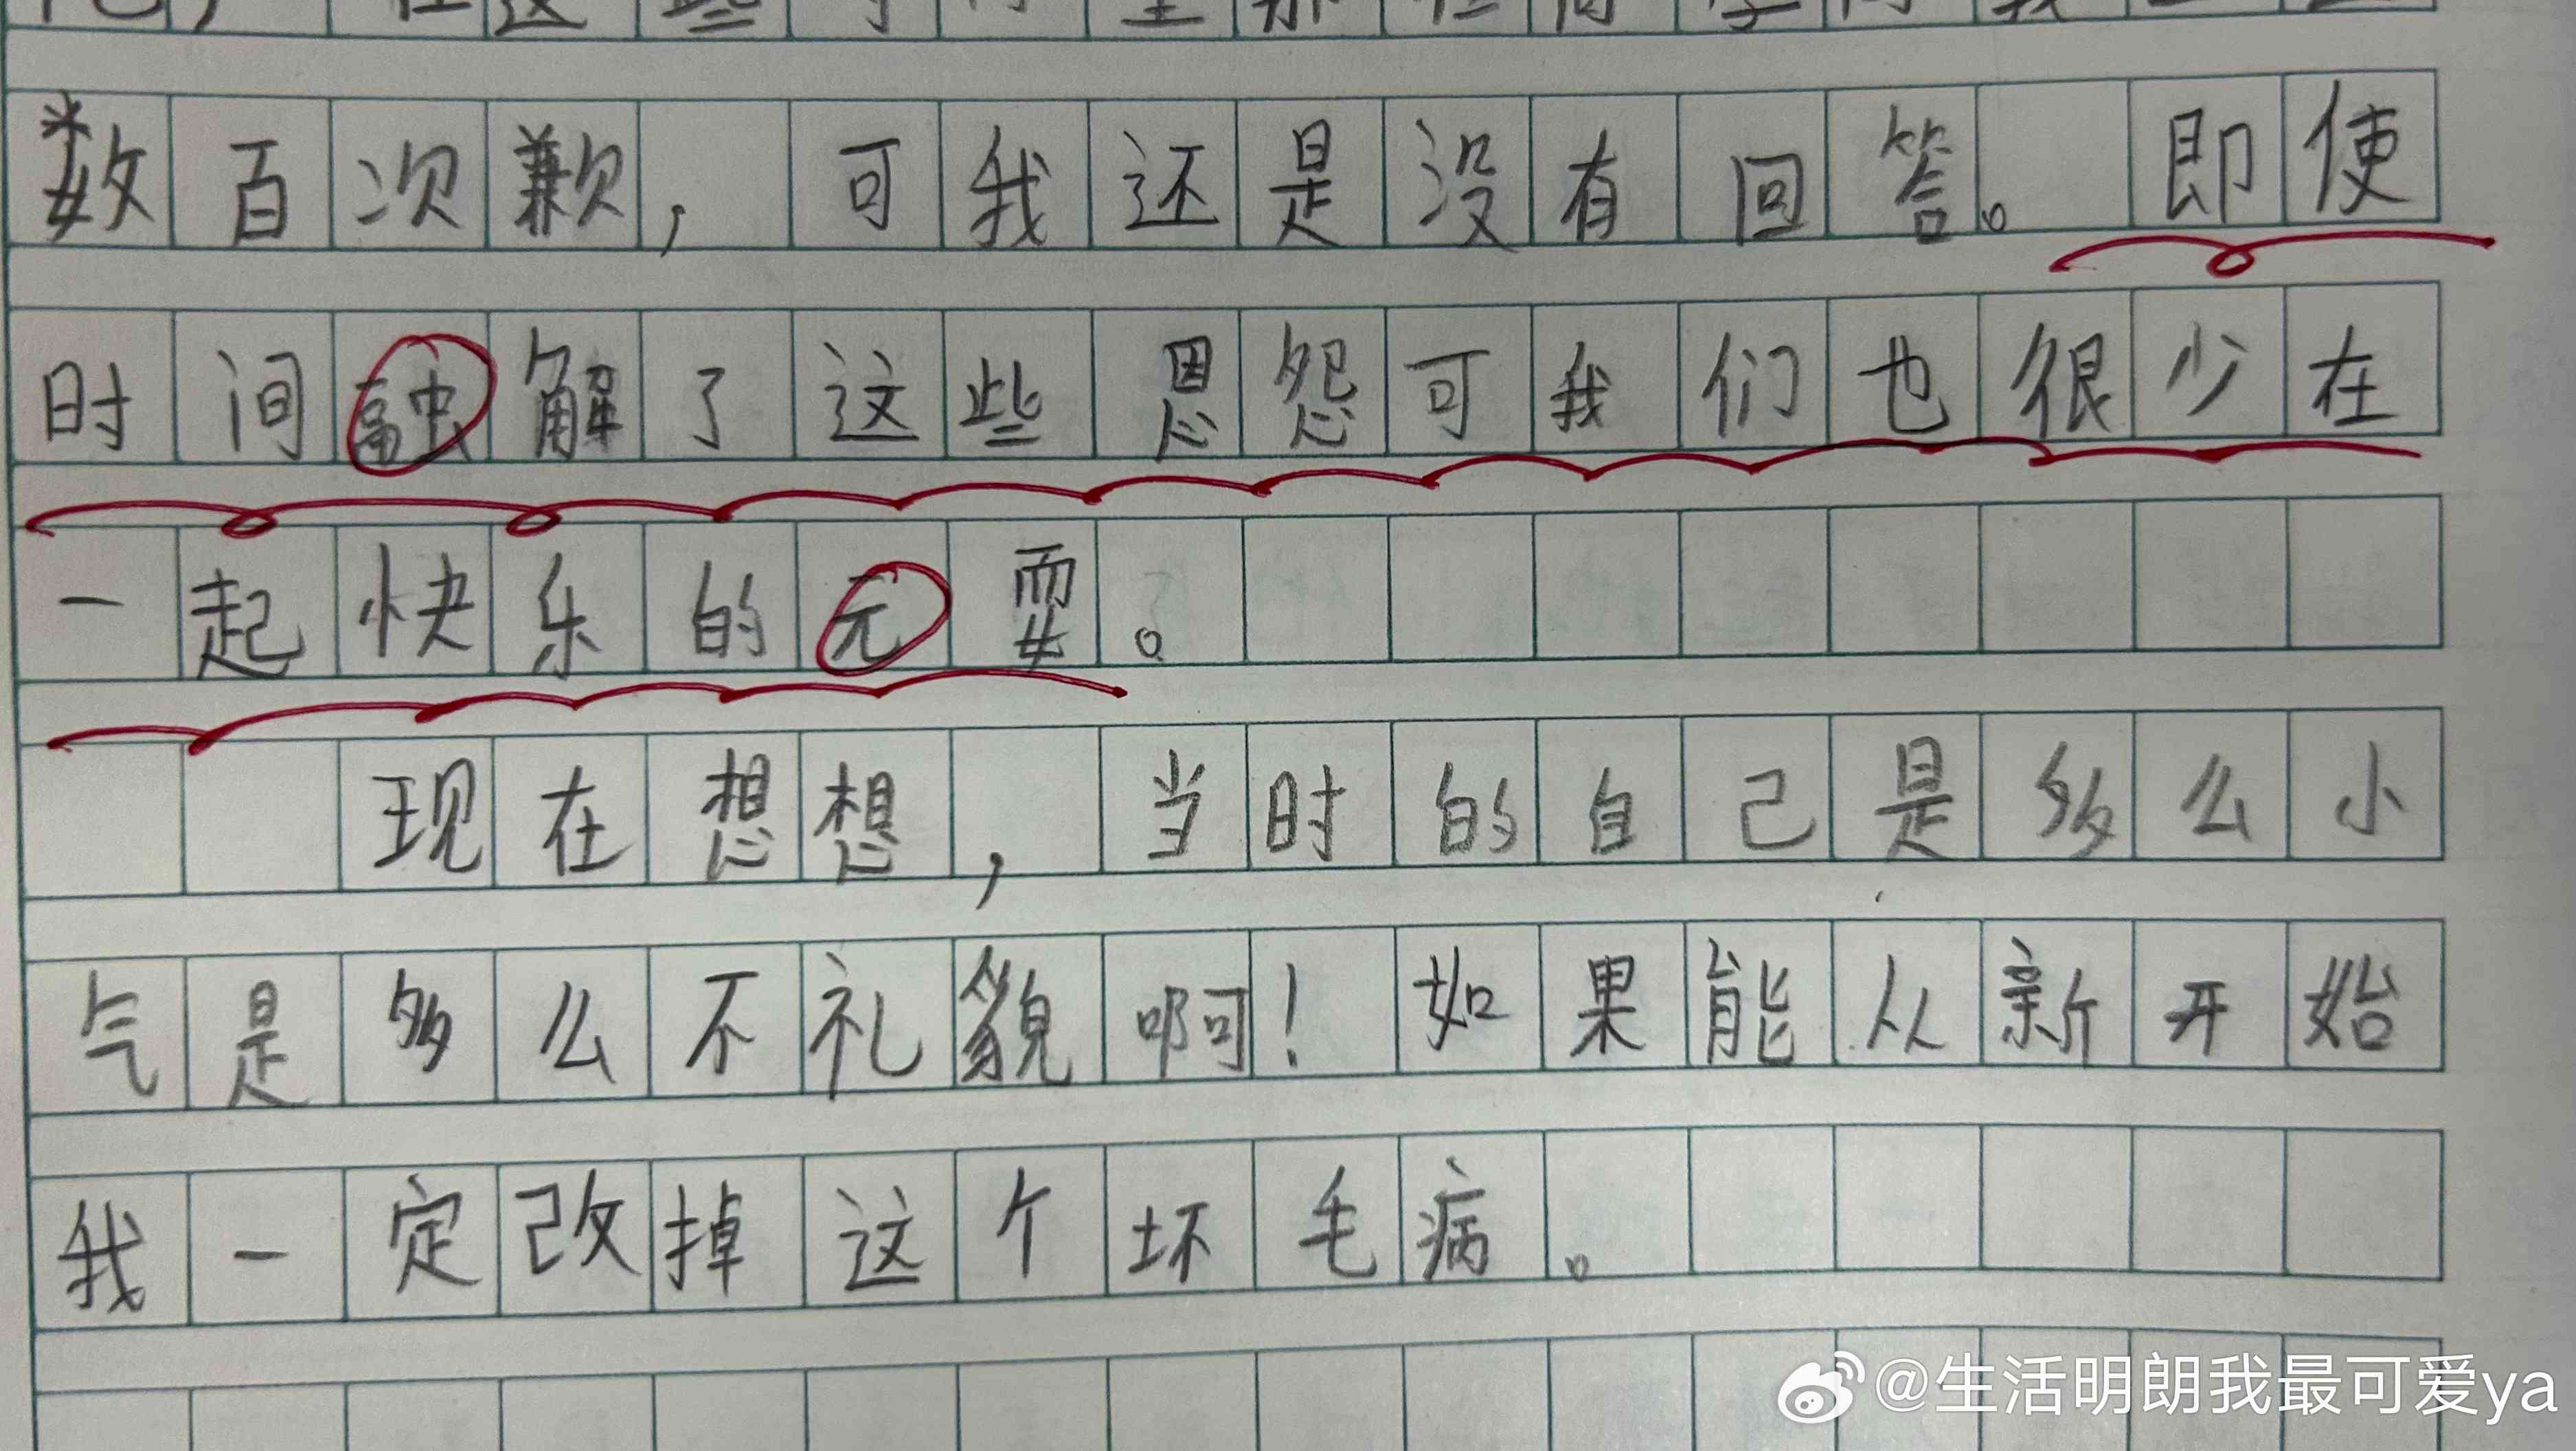 数百次歉，可我还是没有回答。即使
时间融解了这些恩怨可我们也很少在
一起快乐的元耍。
现在想想，当时的自己是多么小
气是多么不礼貌啊！如果能从新开始
我一定改掉这个坏毛病。
@生活明朗我最可爱ya